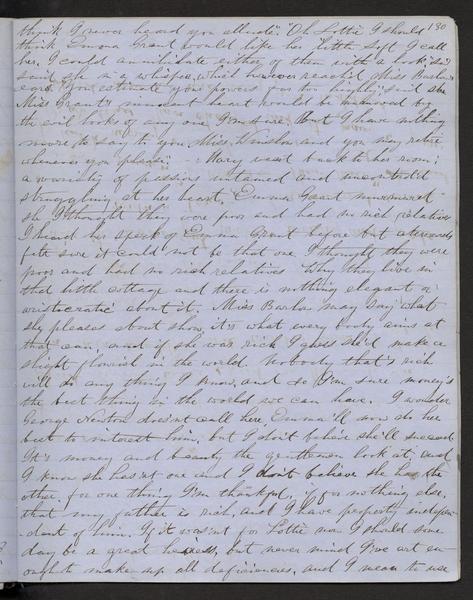 130
think I never heard you allude". "Oh Lottie I should
think Emma Grant would like her little soft I call
her. I could annihilate either of them with a look" so
said she in a whisper, which however reach'd Miss Barlow's
ears. "You estimate your powers far too highly," said she
Miss Grant's innocent heart would be unmoved by
the evil looks of any one I'm sure. But I have nothing
more to say to you Miss Winslow and you may retire
whenever you please." - Mary went back to her room;
a variety of passions untamed and uncontrol'd
struggling at her heart, Emma Grant murmured
she I thought they were poor and had no rich relatives
I heard her speak of Emma Grant before but
felt sure it could not be that one. I thought they were
poor and had no rich relatives. Why they live in
that little cottage and there is nothing elegant or
aristocratic about it. Miss Barlow may say what
she pleases about show, it is what every body aims at
that can, and if she was rich I guess she'd make a
slight flourish in the world. Nobody that's rich
will do any thing I know, and so I'm sure money's
the best thing in the world we can have. I wonder
George Newton does'nt call here, Emma'll now do her
best to interest him, but I don't believe she'll succeed
It's money and beauty the gentlemen look at, and
I know she has'nt one and I don't believe she has the
other, for one thing I'm thankful, if for nothing else,
that my father is rich, and I have property indepen-
-dant of him. If it was'nt for Lottie now I should some
day be a great heiress, but never mind I've art en-
-ough to make up all deficiencies, and I mean to use